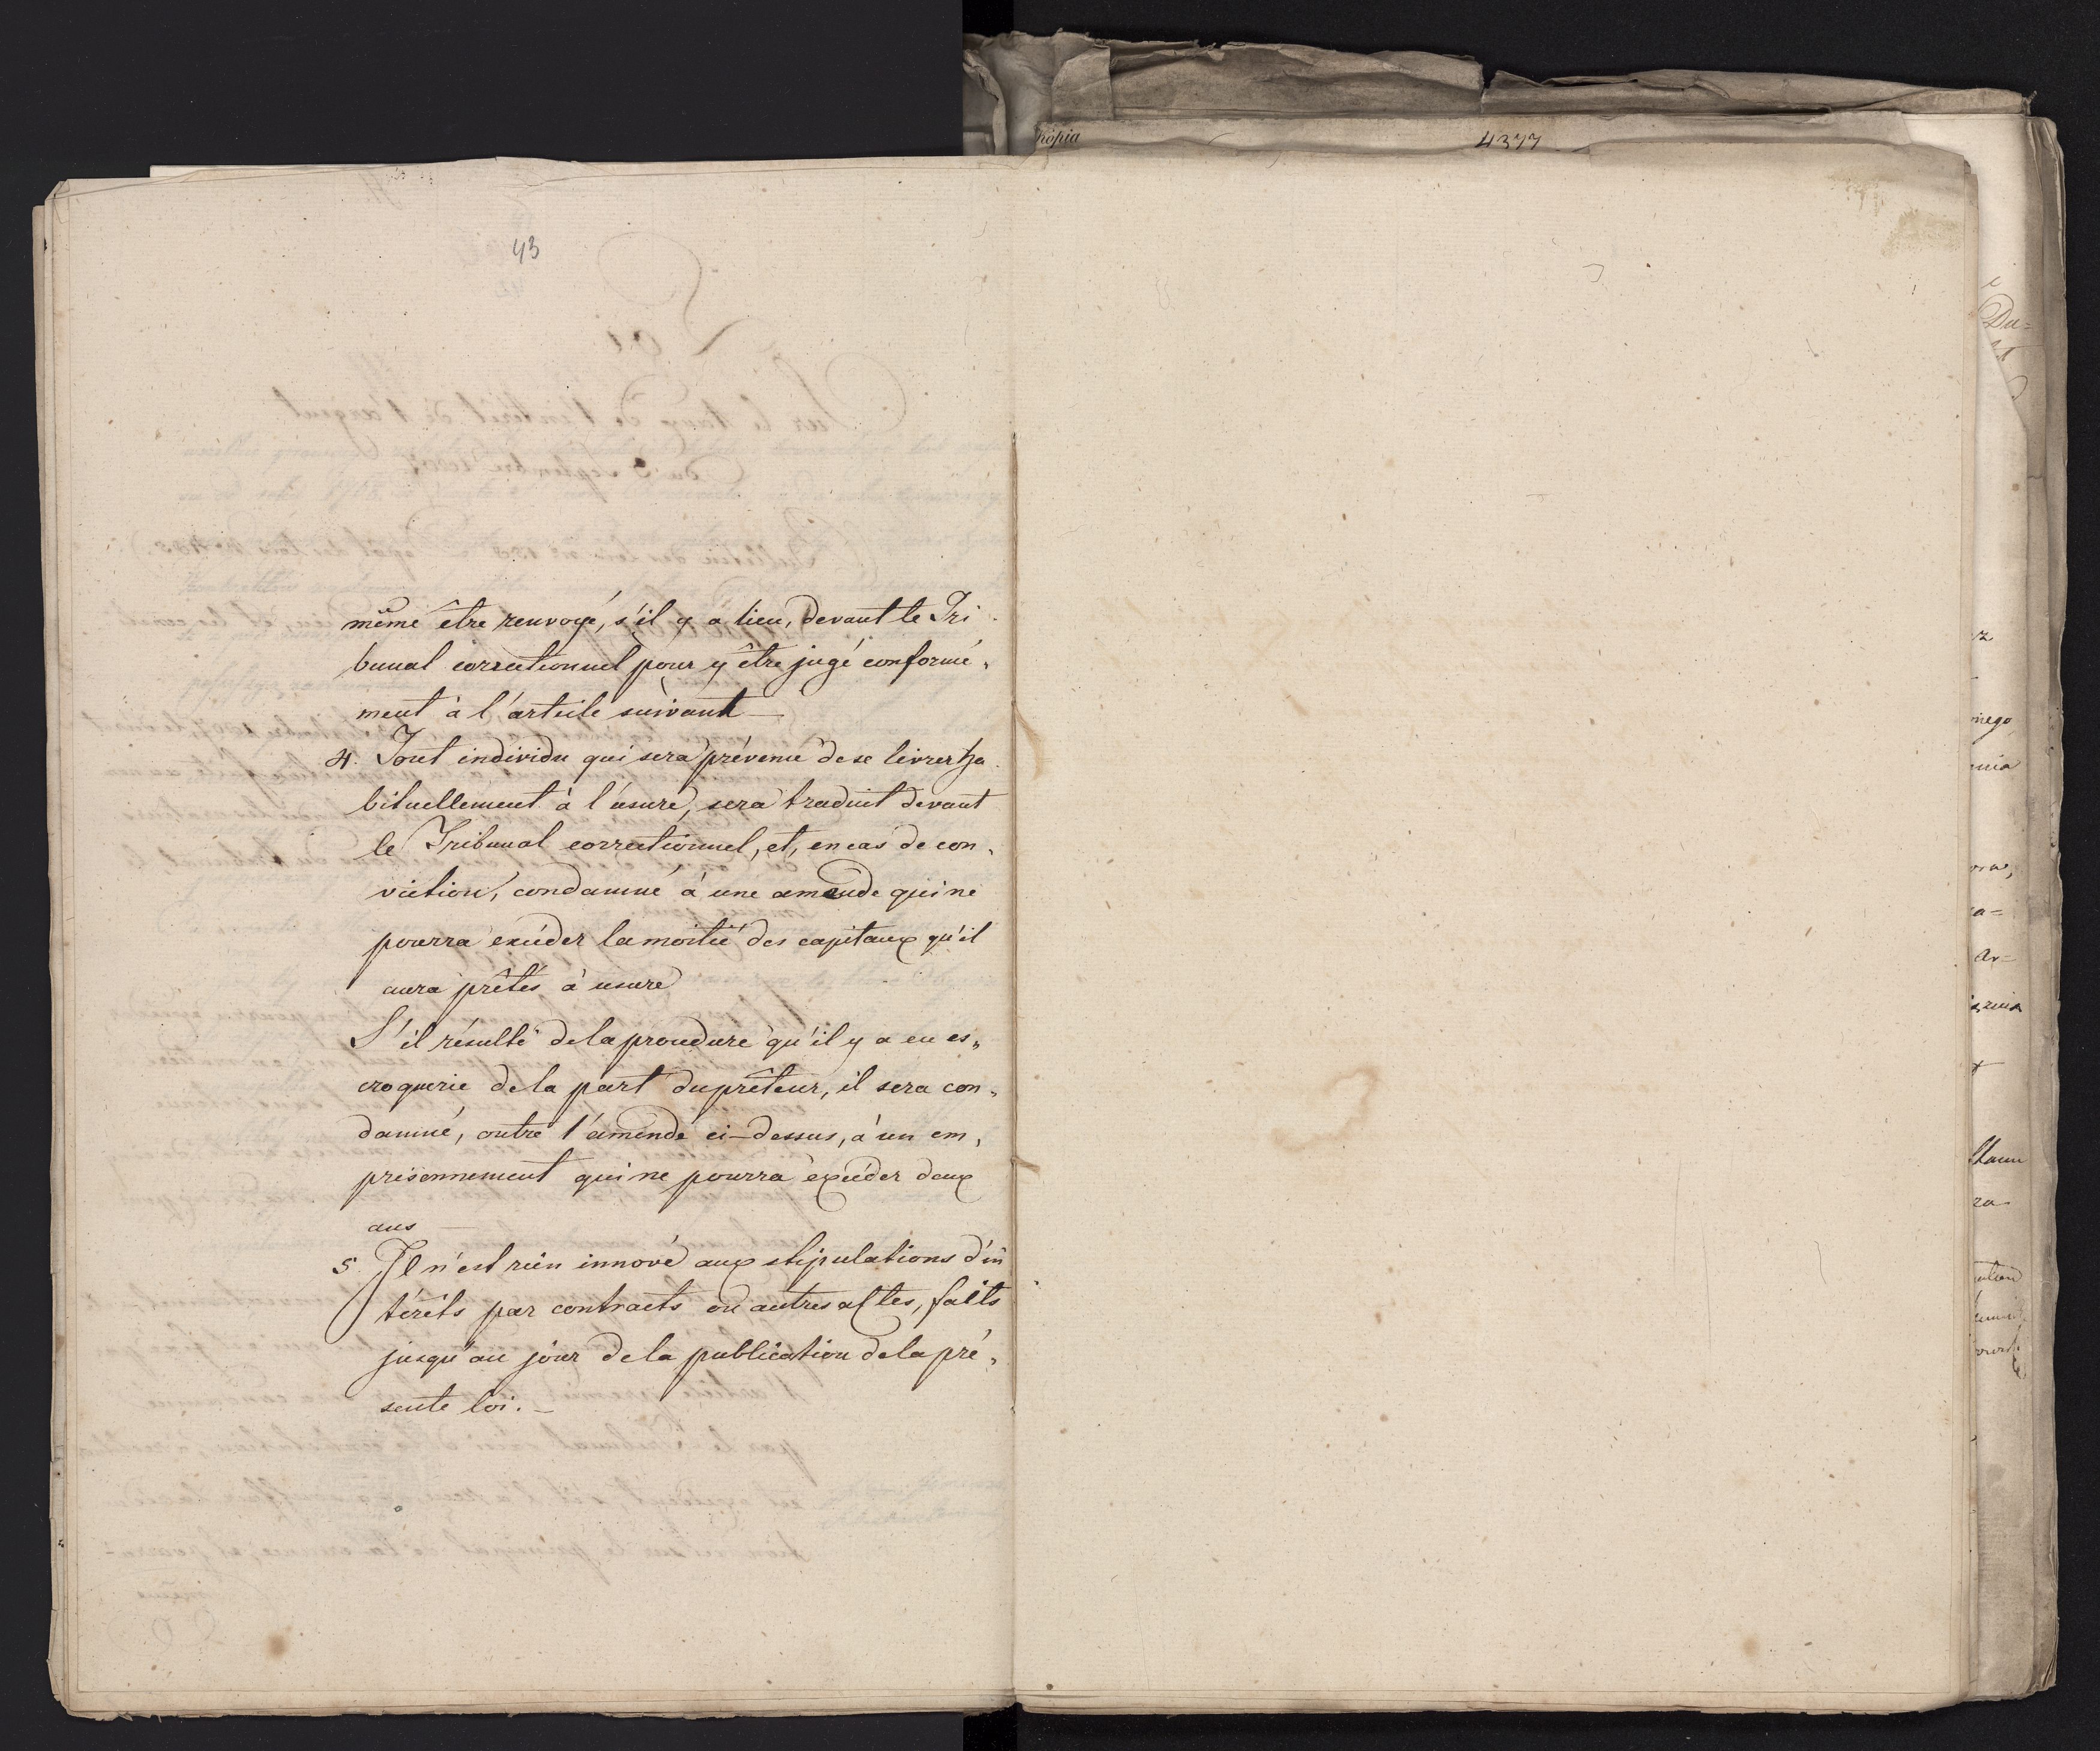 Kopia
4377
43
même être renvoyé, s'il y a lieu, devant le Tri-
bunal correctionnel pour y être jugé conformé-
ment à l'article suivant —
4. Tout individu qui sera prévenu de se livrer ha-
bituellement à l'usure, sera traduit devant
le Tribunal correctionnel, et, en cas de con-
viction, condamné à une amende qui ne
pourra excéder la moitié des capitaux qu'il
aura prêtés à usure
S'il résulte de la procedure qu'il y a eu es-
croquerie de la part du prêteur, il sera con-
damné, outre l'amende ci-dessus, à un em-
prisonnement qui ne pourra excéder deux
ans —
5. Il n'est rien innové aux stipulations d'in
térêts par contracts ou autres actes, faits
jusqu'au jour de la publication de la pré-
sente loi. —